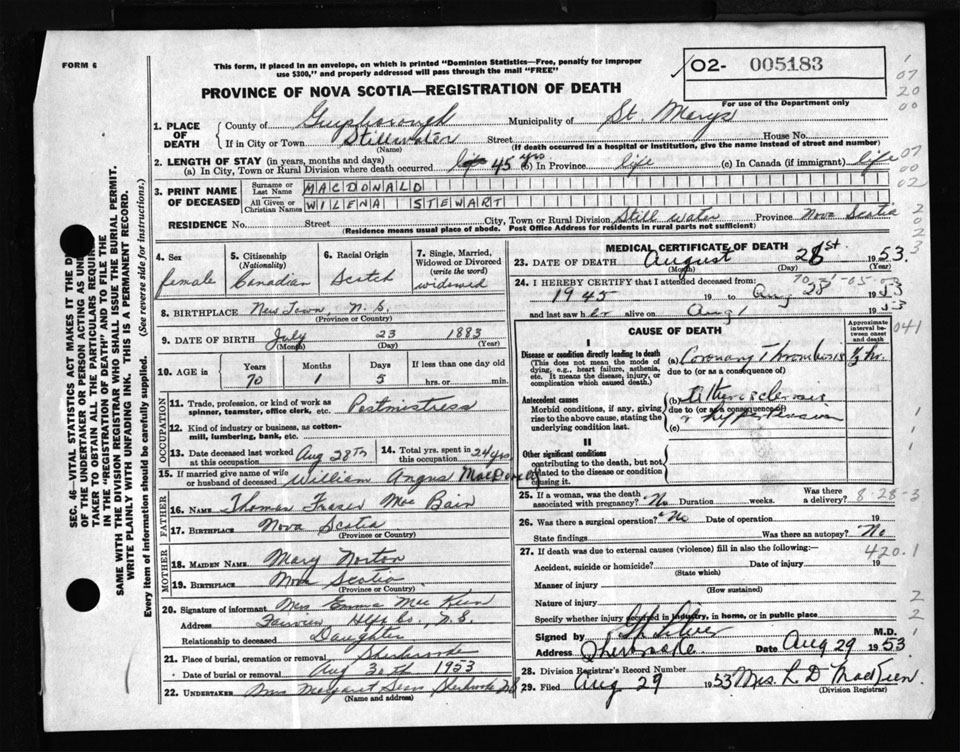 FORM 6
This form, if placed in an envelope, on which is printed "Dominion Statistics—Free, penalty for improper
use $300," and properly addressed will pass through the mail "FREE"
02- 005183
PROVINCE OF NOVA SCOTIA—REGISTRATION OF DEATH
For use of the Department only
1. PLACE OF DEATH
County of Guysborough Municipality of St. Marys
If in City or Town Stillwater Street House No.
(Name) (If death occurred in a hospital or institution, give the name instead of street and number)
2. LENGTH OF STAY (in years, months and days)
(a) In City, Town or Rural Division where death occurred 45 yrs (b) In Province life (c) In Canada (if immigrant) life
3. PRINT NAME OF DECEASED
Surname or Last Name MACDONALD
All Given or Christian Names WILENA STEWART
RESIDENCE No. Street City, Town or Rural Division Still water Province Nova Scotia
(Residence means usual place of abode. Post Office Address for residents in rural parts not sufficient)
4. Sex female
5. Citizenship (Nationality) Canadian
6. Racial Origin Scotch
7. Single, Married, Widowed or Divorced (write the word) widowed
8. BIRTHPLACE New Town, N.S.
(Province or Country)
9. DATE OF BIRTH July 23 1883
(Month) (Day) (Year)
10. AGE in Years Months Days If less than one day
70 1 5 hrs. or min.
OCCUPATION
11. Trade, profession, or kind of work as spinner, teamster, office clerk, etc. Postmistress
12. Kind of industry or business, as cotton-mill, lumbering, bank, etc.
13. Date deceased last worked at this occupation Aug 28th
14. Total yrs. spent in this occupation 24 yrs
15. If married give name of wife or husband of deceased William Angus MacDonald
FATHER
16. NAME Thomas Fraser Mc Bain
17. BIRTHPLACE Nova Scotia
(Province or Country)
MOTHER
18. MAIDEN NAME Mary Norton
19. BIRTHPLACE Nova Scotia
(Province or Country)
20. Signature of informant Mrs Emma Mac Keen
Address Fairview Hfx Co., N.S.
Relationship to deceased Daughter
21. Place of burial, cremation or removal Sherbrooke
Date of burial or removal Aug 30th 1953
22. UNDERTAKER Mrs Margaret Sears, Sherbrooke NS
(Name and address)
MEDICAL CERTIFICATE OF DEATH
23. DATE OF DEATH August 28 1953.
(Month) (Day) (Year)
24. I HEREBY CERTIFY that I attended deceased from:
1945 19 to Aug 28 1953
and last saw her alive on Aug 1 1953
CAUSE OF DEATH
Approximate interval between onset and death
I
Disease or condition directly leading to death
(This does not mean the mode of dying, e.g., heart failure, asthenia, etc. It means the disease, injury, or complication which caused death.)
(a) Coronary Thrombosis ½ hr.
due to (or as a consequence of)
Antecedent causes
Morbid conditions, if any, giving rise to the above cause, stating the underlying condition last.
(b) Atherosclerosis
due to (or as a consequence of)
& hypertension
(c)
II
Other significant conditions
contributing to the death, but not related to the disease or condition causing it.
25. If a woman, was the death associated with pregnancy? No Duration weeks. Was there a delivery?
8-28-3
26. Was there a surgical operation? No Date of operation 19
State findings Was there an autopsy? No
27. If death was due to external causes (violence) fill in also the following:—
420.1
Accident, suicide or homicide? Date of injury 19
(State which)
Manner of injury
(How sustained)
Nature of injury
Specify whether injury occurred in industry, in home, or in public place
Signed by M.D.
Address Sherbrooke Date Aug 29 1953.
28. Division Registrar's Record Number
29. Filed Aug 29 1953 Mrs. L D MacKeen.
(Division Registrar)
SEC. 46—VITAL STATISTICS ACT MAKES IT THE
OF THE UNDERTAKER OR PERSON ACTING AS
TAKER TO OBTAIN ALL THE PARTICULARS
IN THE "REGISTRATION OF DEATH" AND TO FILE THE
SAME WITH THE DIVISION REGISTRAR WHO SHALL ISSUE THE BURIAL PERMIT.
WRITE PLAINLY WITH UNFADING INK. THIS IS A PERMANENT RECORD.
Every item of information should be carefully supplied. (See reverse side for instructions.)